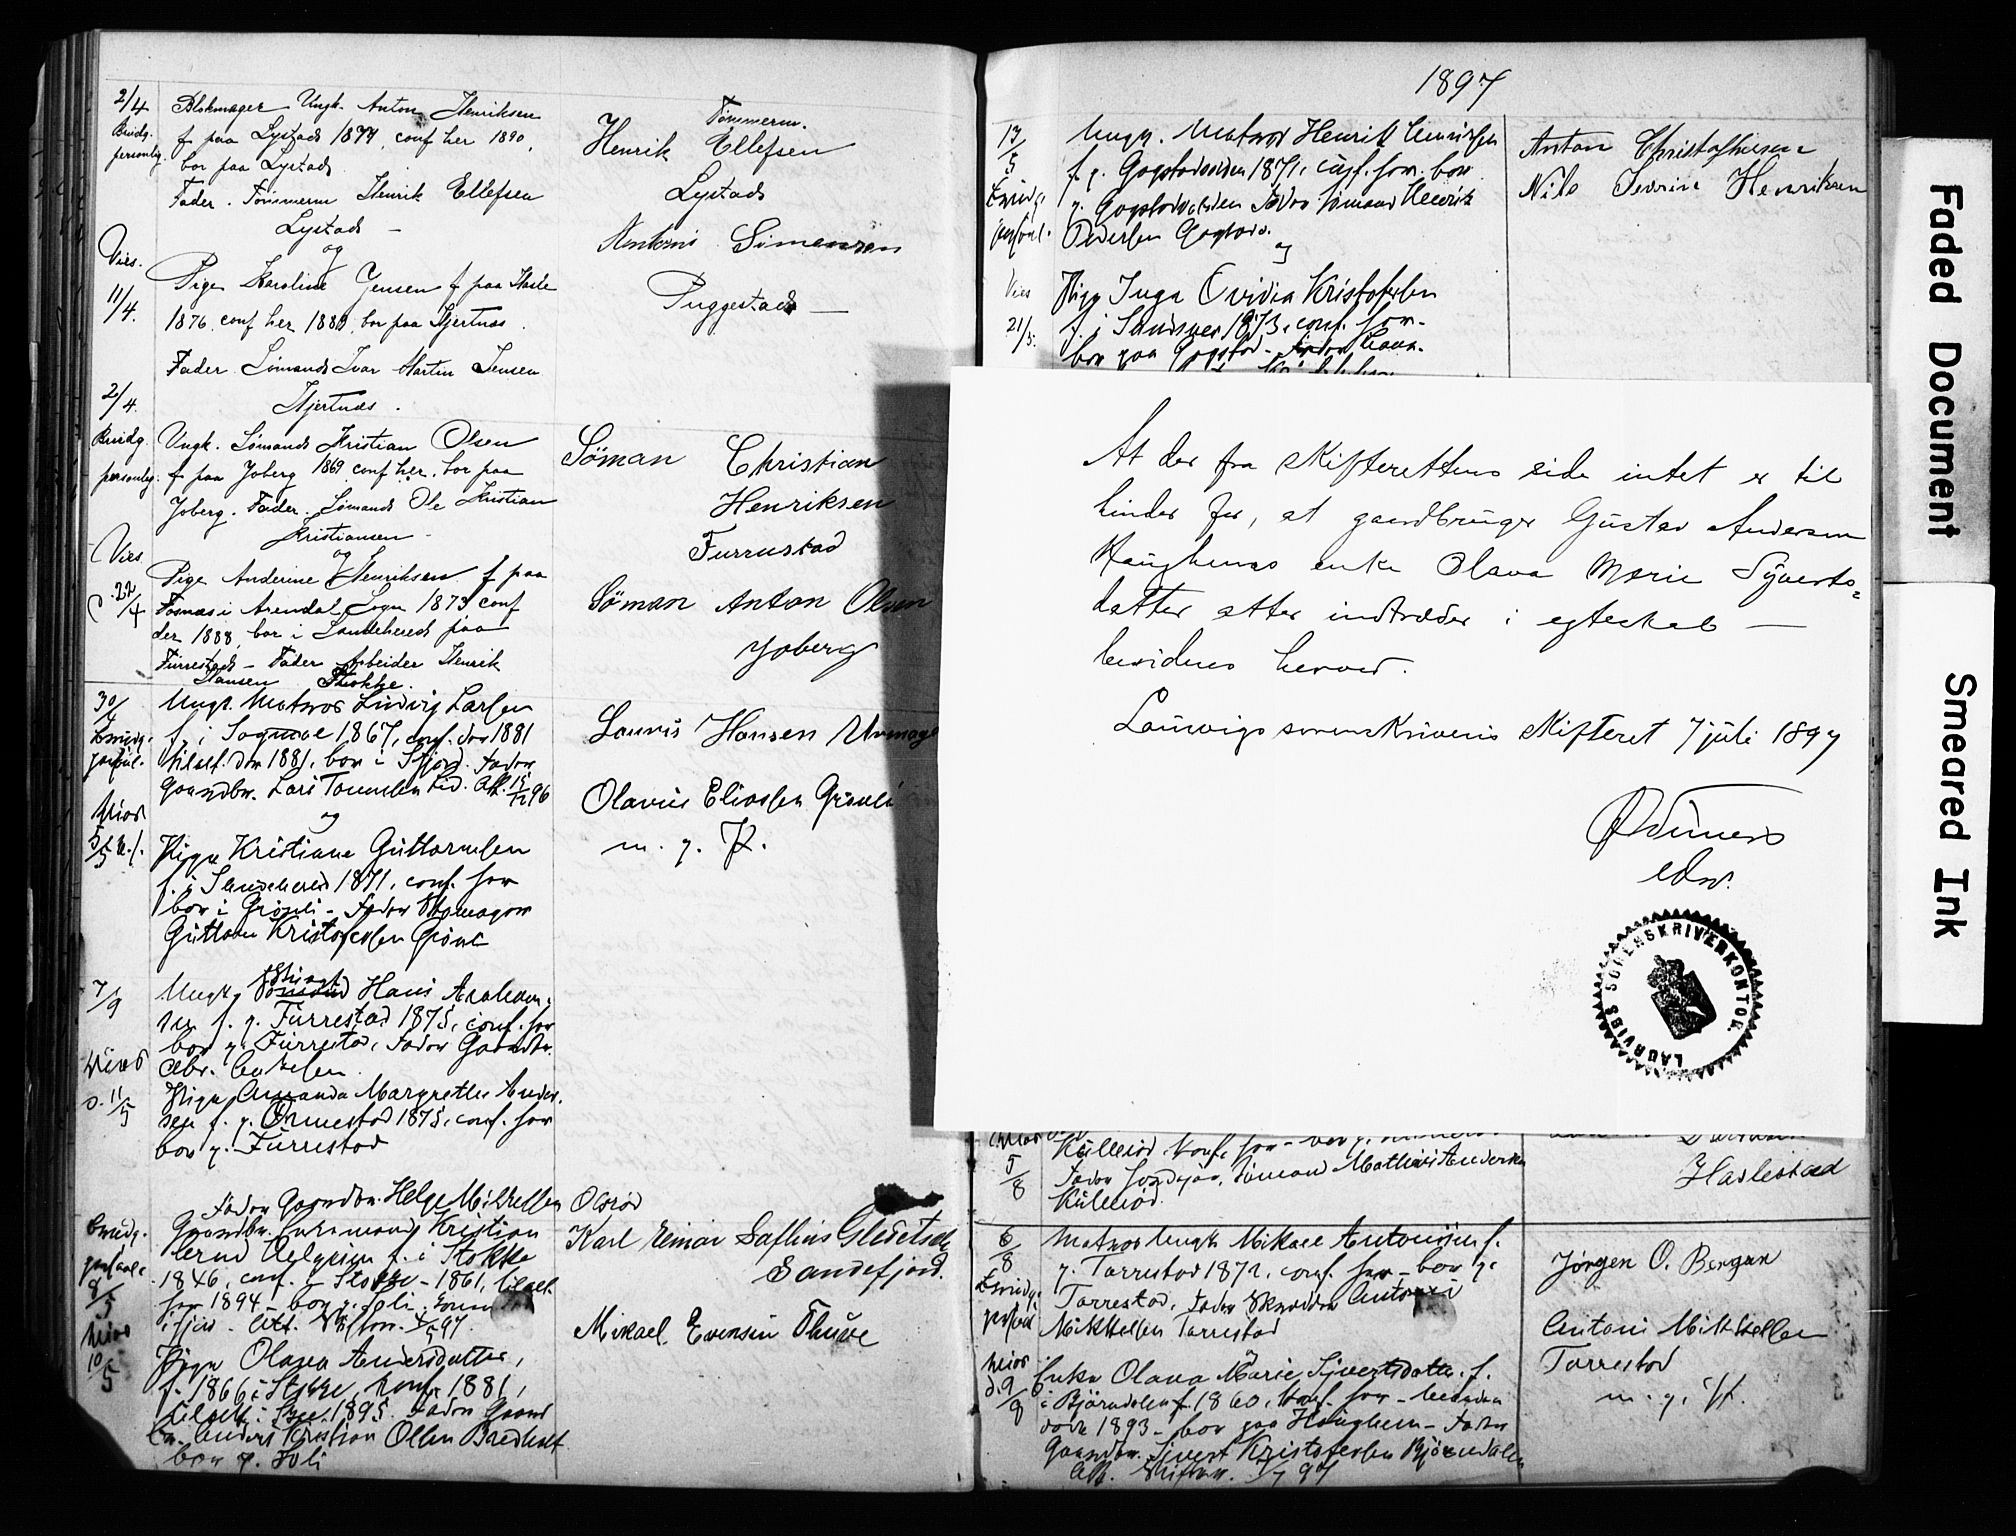 2/4
Brudg.
personlig.
Blokmager Ungk. Anton Henriksen
f paa Lystad 1877, conf her 1890,
bor paa Lystad
Fader. Tømmerm Henrik Ellefsen
Lystad –
og
Vies.
11/4.
Pige Karoline Jensen f paa Hasle
1876. conf her 1889, bor paa Hjertnæs.
Fader. Sömand Ivar Martin Jensen
Hjertnæs.
Tömmerm.
Henrik Ellefsen
Lystad
Antoni Simensen
Puggestad –
2/4.
Brudg.
personlig.
Ungk. Sömand Kristian Olsen
f paa Joberg 1869 conf her. bor paa
Joberg. Fader. Sömand Ole Kristian
Kristiansen
og
Vies
22/4
Pige Anderine Henriksen f paa
Fosnæs i Arendal Sogn 1873 conf
der 1888, bor i Sandehered paa
Furrestad – Fader Arbeider Henrik
Hansen Stokke.
Söman Christian
Henriksen
Furrustad
Söman Anton Olsen
Joberg
30/4
Brudg.
Ungk. Matros Ludvig Larsen
f. i Sogndal 1867, conf. der 1881
tilsat. der 1881, bor i Sfjord. Fader
Gaardbr. Lars Tommesen Lid. Att. 15/12 96
og
Vies
5/5
Pige Kristiane Guttormsen
f. i Sandehered 1871, conf. her
bor i Grönli – Fader Skomager
Guttorm Kristofersen Grönli
Lauris Hansen Urmag
Olavus Eliassen Grönli
m. p. P.
7/9
Ungk. Sömand Hans Abraham-
sen f. p. Furrestad 1875, conf. her
bor p. Furrestad, Fader Gaardbr.
Vies
d. 11/5
Pige Amanda Margrethe Ander-
sen f. p. Ormestad 1875, conf. her
bor p. Furrestad
Fader Gaardbr. Helge Mikkelsen Olsröd
Brudg.
8/5
Gaardbr. Enkemand Kristian
f. i Stokke
1846, conf. i Stokke – 1861, tilsat.
her 1894 – bor p. Joli.
Vies
10/5
Pige Olava Andersdatter,
f. 1866 i Stokke, konf. 1881,
1895 Fader Gaard
br. Anders Kristian Olsen Bredholt
bor p. Joli
Karl Einar
Sandefjord.
Mikael Evensen Thuve
1897
17/5
Brudg.
Ungk. Matros Henrik Henriksen
f. p. Gogstadveden 1871, conf. her. bor
p. Gogstadveden Fader Sömand Henrik
Pedersen Gogstad.
og
Vies
21/5.
Pige Inga Ovidia Kristofersen
f. i Sandsver 1873, conf. her.
bor paa Gogstad –
Anton Christofhersen
Nils Severin Henriksen
At der fra skifterettens side intet er til
hinder for, at gaardbruger Gustav Andersen
Haughems enke Olava Marie Syverts-
datter atter indtræder i egteskab –
bevidnes herved.
Laurvigs sorenskriveris skifteret 7 juli 1897
edsv.
LAURVIGS SORENSKRIVERKONTOR
Vies
5/8
Külleröd, konf. her –
Fader Sömand Mathias Andersen
Külleröd.
Haslestad
6/8
Brudg.
Matros Ungk. Mikael Antonisen f.
p. Tarrestad 1872, conf. her – bor p.
Tarrestad. Fader Skrædder Antoni
Mikkelsen Tarrestad
Vies
d. 9/8
Enke Olava Marie Sivertsdatter f.
i Björndalen f. 1860, konf. her –
döde 1893 – bor paa Haughem – Fader
Gaardbr. Sivert Kristofersen Björndalen
Att. Skifter. 7/7 97
Jörgen O. Bergan
Antoni Mikkelsen
Tarrestad
m. p. P.
Faded Document
Smeared Ink